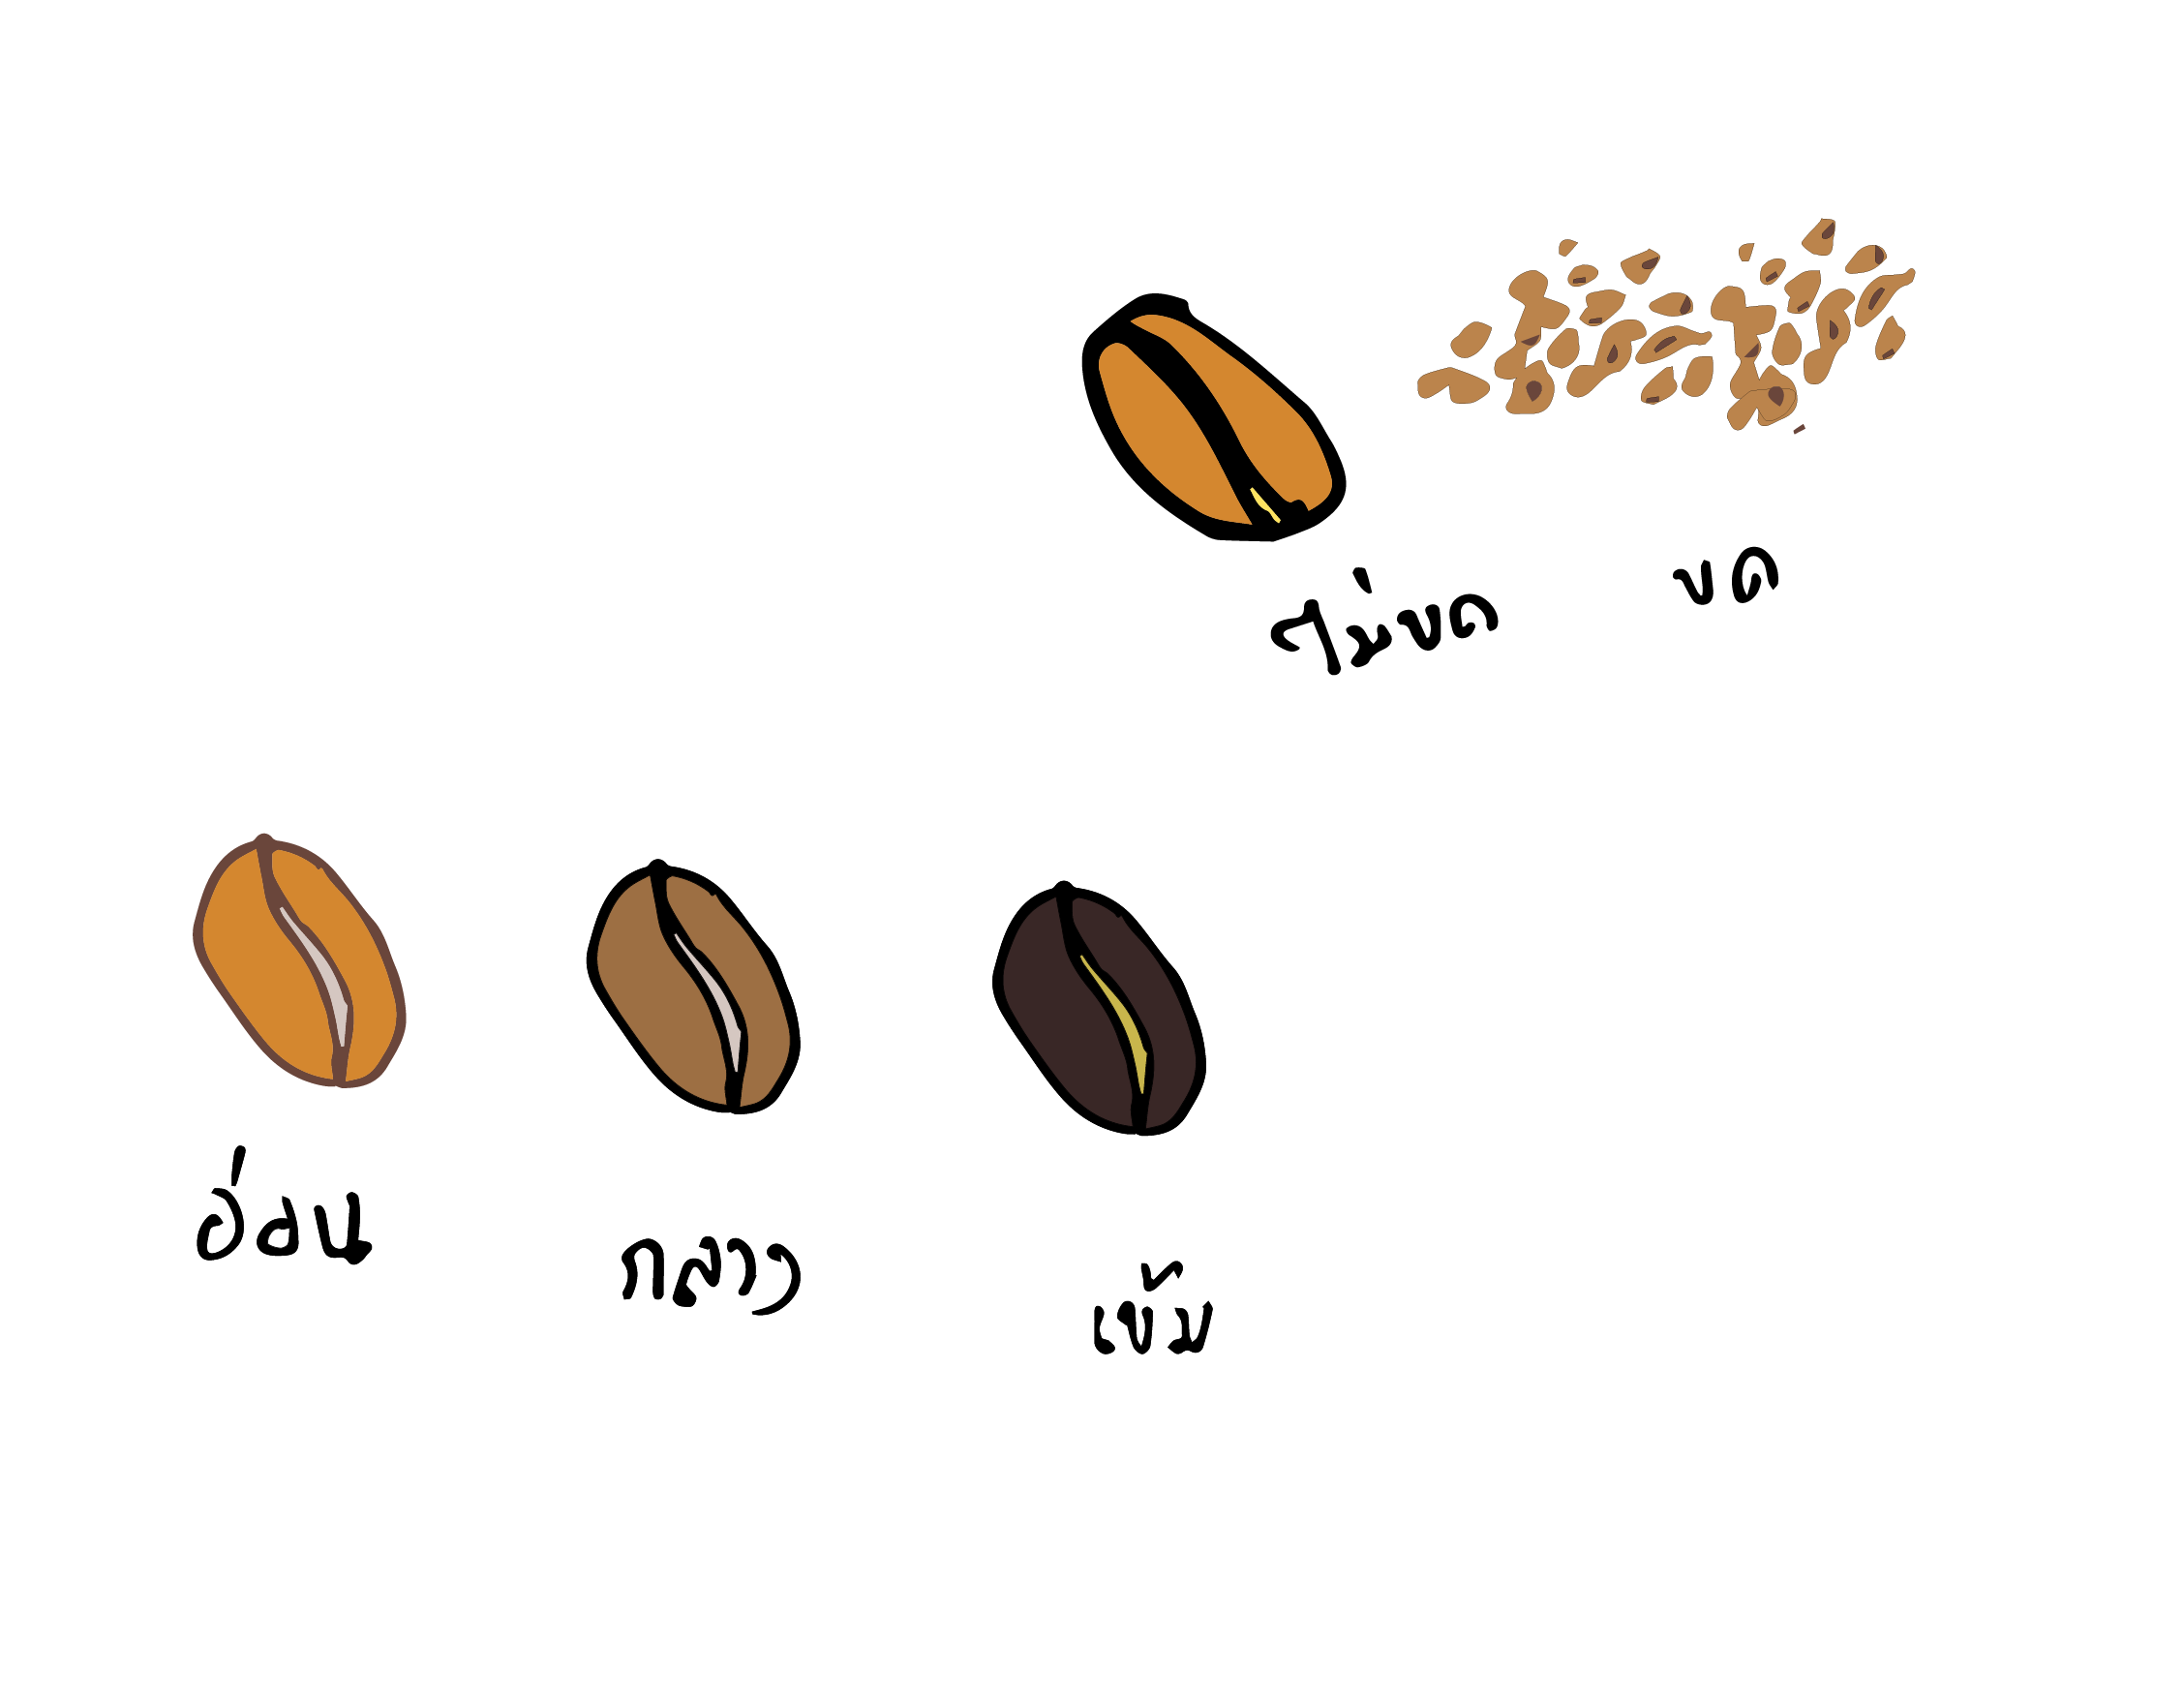 ไม่บด
บด
อ่อน
กลาง
เข้ม